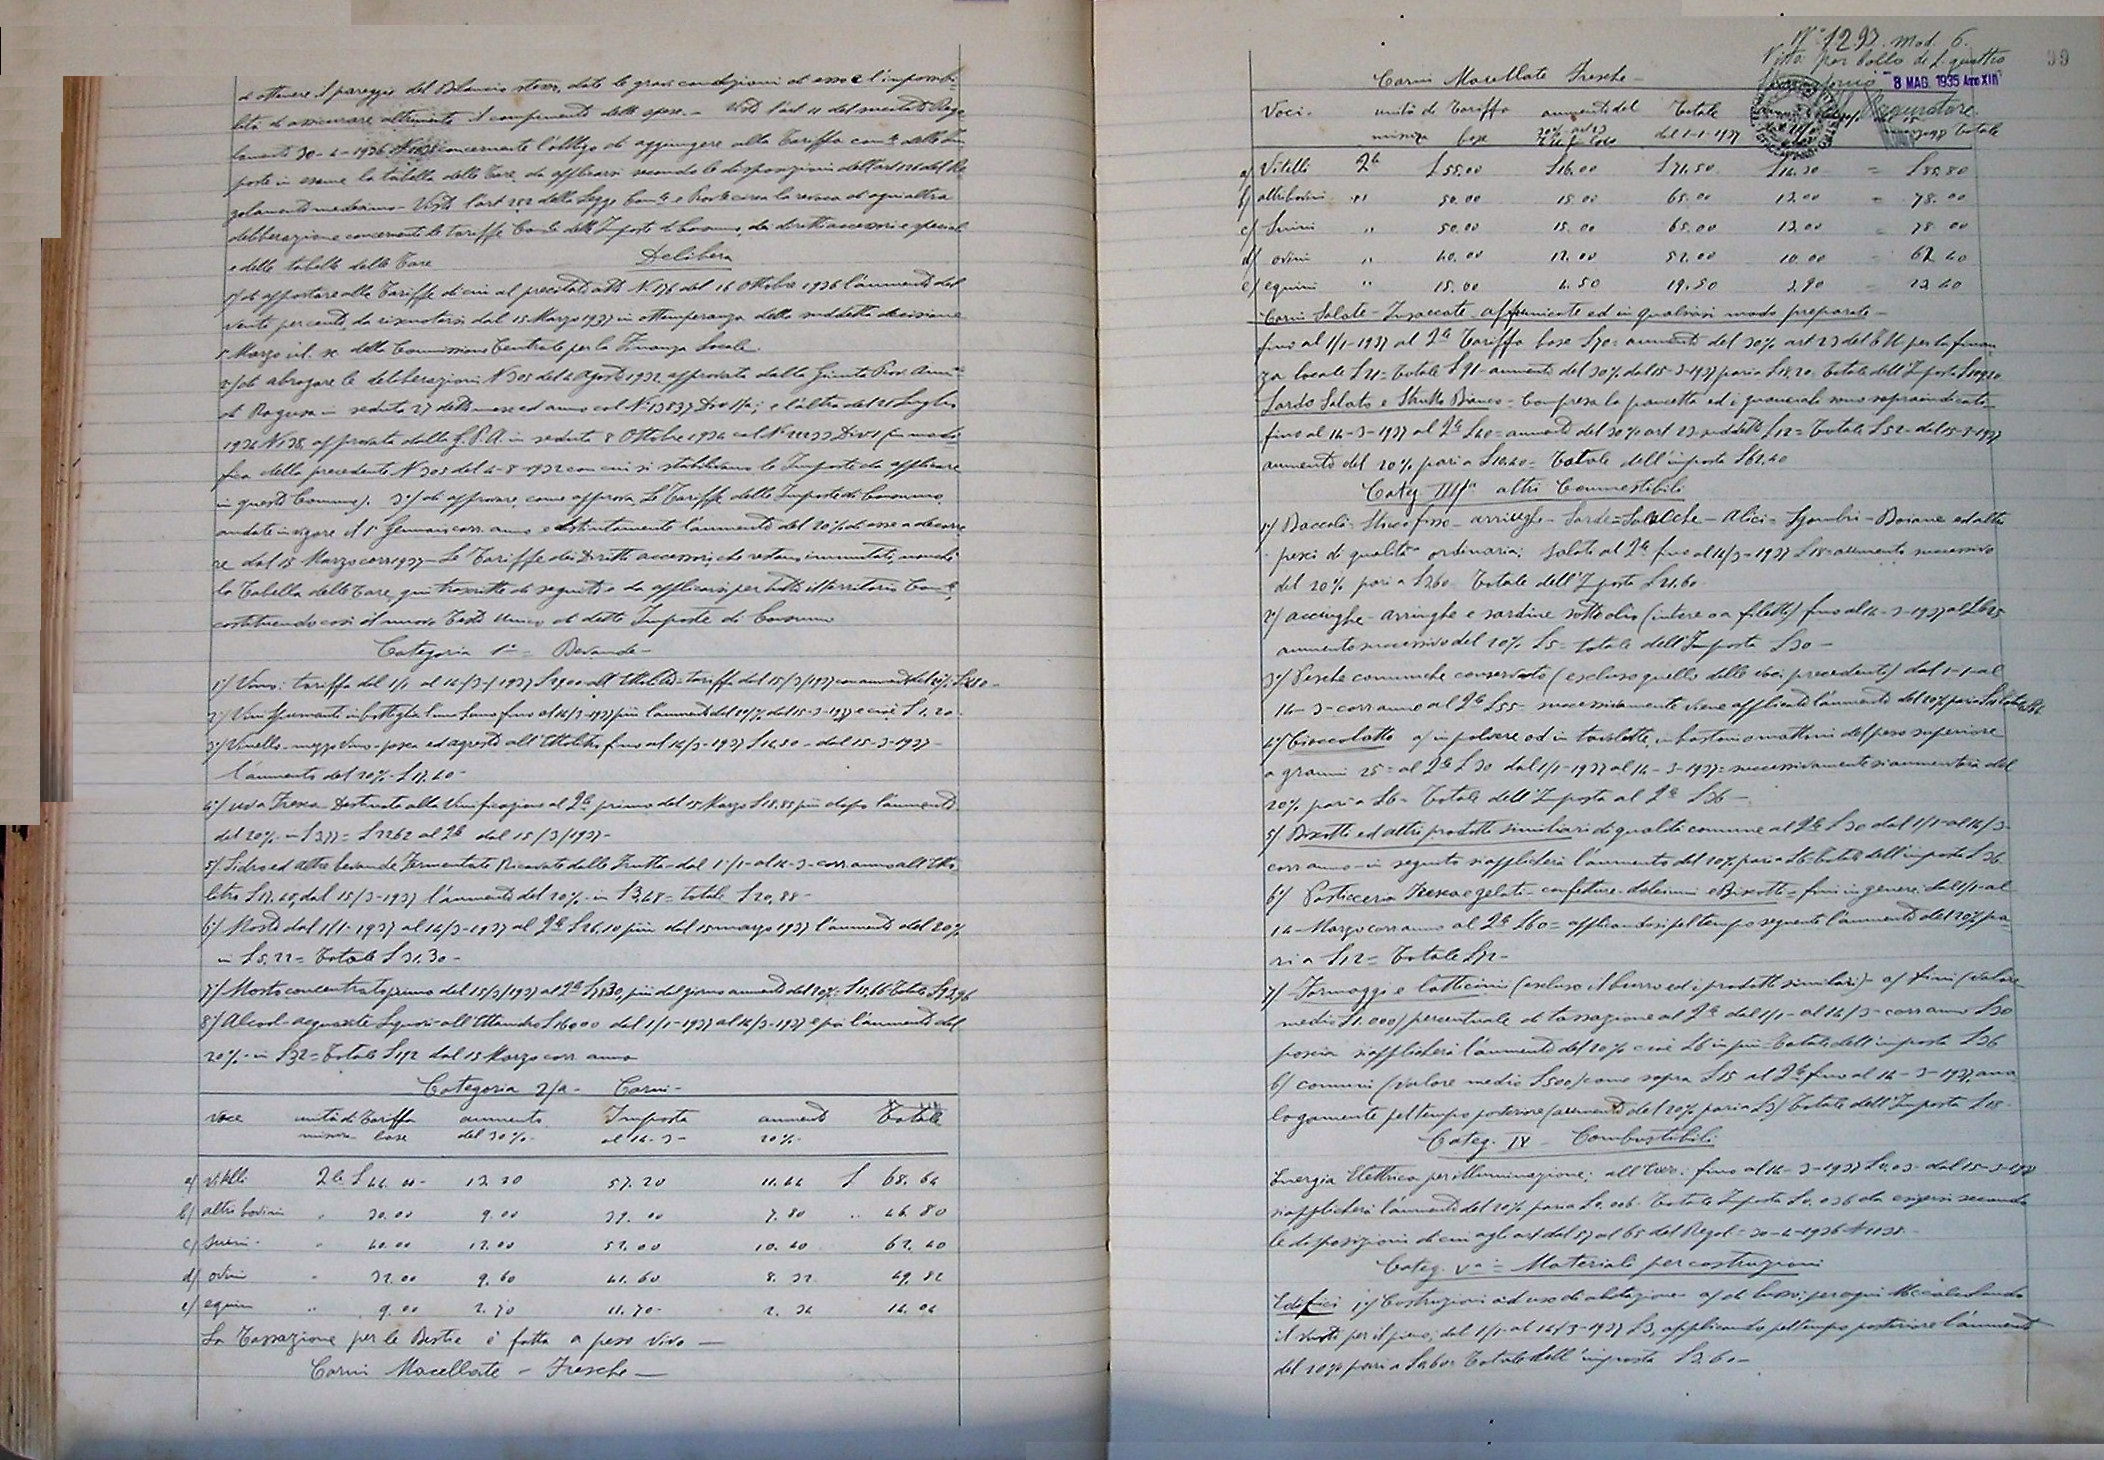 di ottenere il pareggio del Bilancio stesso, date le gravi condizioni di esso e l'impossibi-
lità di assicurare altrimenti il compimento delle spese. - Visto l'art 11 del Rego
lamento 30-4-1936 N 1138 concernente l'obbligo di aggiungere alla Tariffa com.le delle Im
poste in esame la tabella delle Tare da applicarsi secondo le disposizioni dell'art del Re
golamento medesimo - Visto l'art 252 della Legge Com.le e Prov.le circa la revoca di ogni altra
deliberazione concernente le tariffe Com.li delle Imposte di Consumo, dei diritti accessori e speciali
e delle tabelle delle Tare Delibera
1°/ di apportare alla Tariffe di cui al precitato atto N.176 del 16 Ottobre 1936 l'aumento del
venti per cento, da riscuotersi dal 15 Marzo 1937 in ottemperanza della suddetta decisione
5 Marzo della Commissione Centrale per la Finanza Locale.
2°/ di abrogare le deliberazioni N 305 del 4 Agosto 1932 approvata dalla Giunta Prov. Amm.va
di Ragusa in seduta 27 detto mese ed anno col N° 13837 Div. ; e l'altra del 21 Luglio
1934 N 138, approvata dalla G. P. A. in seduta 8 Ottobre 1934 col N° 22233 Div 1 (in modi
fica della precedente N 305 del 4-8-1932 con cui si stabilivano le Imposte da applicare
in questo Comune). 3°/ di approvare, come approva, Le Tariffe delle Imposte di Consumo
andate in vigore il 1° Gennaio corr. anno e distintamente l'aumento del 20% di esse a decorre
re dal 15 Marzo corr 1937 - Le Tariffe dei Diritti accessori, che restano immutati, nonchè
la Tabella delle Tare, qui trascritte di seguito e da applicarsi per tutto il territorio Com.le,
costituendo così il nuovo Testo Unico di dette Imposte di Consumo
Categoria 1a = Bevande -
1°/ Vino: tariffa dal 1/1 al 14/3/1937 L 29,00 all'Ettolitro - tariffa dal 15/3/1937 con aumento del 20% L 34,80 -
2°/ Vini Spumanti in bottiglia L uno fino al 14/3-1937 più l'aumento del 20% dal 15-3-1937 e cioè L 1,20
3°/ Vinello - mezzo Vino - posca ed agresto all'Ettolitro fino al 14/3-1937 L 14.50 - dal 15-3-1937 -
l'aumento del 20% - L 17.40 -
4°/ uva Fresca - Destinata alla Vinificazione al Q.le prima del 15 Marzo L 18.85 più dopo l'aumento
del 20% in L 3,77 = L 22.62 al Q.le dal 15/3/1937 -
5°/ Sidro ed altre bevande Fermentate Ricavate dalle Frutta - dal 1°/1 - al 14-3 - corr. anno all'Etto-
litro L 17.40, dal 15/3-1937 l'aumento del 20% in L 3,48 = totale L 20,88 -
6°/ Mosto dal 1/1 - 1937 al 14/3-1937 al Q.le L 26,10 più dal 15 marzo 1937 l'aumento del 20%
in L 5.22 = Totale L 31.30 -
7°/ Mosto concentrato prima del 15/3/1937 al Q.le L 58,30, più del giorno aumento del 20% = L 11,66 Totale
8°/ Alcool - acquavite Liquori - all'Ettanidro L 160.00 dal 1/1-1937 al 14/3-1937 e poi l'aumento del
20% - in L 32 = Totale L 192 dal 15 Marzo corr. anno
Categoria 2/a - Carni -
Voce unità di Tariffa aumento Imposta aumento Totale
misura base del 30% - al 14-3- 20% -
a/ Vitelli Q.le L 44.00 - 13.20 57.20 11.44 L 68.64
b/ altri bovini " 30.00 9.00 39.00 7.80 " 46.80
c/ Suini - " 40.00 12.00 52.00 10.40 62.40
d/ ovini " 32.00 9.60 41.60 8.32 49.82
e/ equini " 9.00 2.70 11.70 - 2.34 14.04
La Tassazione per le Bestie è fatta a peso vivo -
Carni Macellate - Fresche -
N° 1293. mod. 6.
Visto per bollo di L. quattro
8 MAG. 1935 Anno XIII
39
Carni Macellate Fresche -
Voci - unità di Tariffa aumento del Totale Totale
misura base 30% art 23 dal 1-1-1937
a/ Vitelli Q.le L 55.00 L 16.00 L 71.50 L 14.30 = L 85.80
b/ altri bovini " 50.00 15.00 65.00 13.00 = 78.00
c/ Suini " 50.00 15.00 65.00 13.00 = 78.00
d/ ovini " 40.00 12.00 52.00 10.00 = 62.40
e/ equini " 15.00 4.50 19.50 3,90 = 23.40
Carni Salate - Insaccate - affumicate ed in qualsiasi modo preparate -
fino al 1/1-1937 al Q.le Tariffa base L 70 = aumento del 30% art 23 del T.U. per la finan-
za locale L 21 = Totale L 91 - aumento del 20% dal 15-3-1937 pari a L 18,20 Totale dell'Imposta L 109,20
Lardo Salato e Strutto Bianco - Compresa la pancetta ed i guanciali
fino al 14-3-1937 al Q.le L 40 = aumento del 30% art 23 suddetto L 12 = Totale L 52 - dal 15-3-1937
aumento del 20% pari a L 10.40 = Totale dell'imposta L 62,40
Categ III/a altri Commestibili
1°/ Baccalà - Stoccofisso - arringhe - Sarde = Salacche - Alici = Sgombri - Boiane ed altri
pesci di qualità ordinaria; Salati al Q.le fino al 14/3-1937 L 18 = aumento successivo
del 20% pari a L 3,60 Totale dell'Imposta L 21,60
2°/ acciughe - arringhe e sardine sott'olio (intere o a filetti) fino al 14-3-1937 al Q.le L 25
aumento successivo del 20% L 5 = totale dell'Imposta L 30 -
3°/ Pesche comunche conservato (escluso quello delle voci precedenti) dal 1-1-al
14-3-corr anno al Q.le L 55 - successivamente viene applicato l'aumento del 20% pari a L 11 totale L 66
4°/ Cioccolatto a/ in polvere od in tavolette, in bastoni o mattoni del peso superiore
a grammi 25 = al Q.le L 30 dal 1/1-1937 al 14-3-1937 = successivamente si aumenterà del
20% pari a L 6 - Totale dell'Imposta al Q.le L 36 -
5°/ Biscotti ed altri prodotti similiari di qualità comune al Q.le L 30 dal 1/1-al 14/3-
corr anno - in seguito si applicherà l'aumento del 20% pari a L 6 - totale dell'imposta L 36
6°/ Pasticceria Fresca e gelati - confetture - dolciumi e Biscotti = fini in genere dal 1/1-al
14 - Marzo corr anno al Q.le L 60 = applicandosi pel tempo seguente l'aumento del 20% pa-
ri a L 12 = Totale L 72 -
7°/ Formaggi e latticini (escluso il burro ed i prodotti similari) - a/ fini (valore
medio L 1.000) percentuale di tassazione al Q.le dal 1/1 - al 14/3 - corr anno L 30
poscia si applicherà l'aumento del 20% cioè L 6 in più = Totale dell'imposta L 36
b/ comuni (valore medio L 500) come sopra L 15 al Q.le fino al 14-3-1937, ana
logamente pel tempo posteriore (aumento del 20% pari a L 3) Totale dell'Imposta L 18 -
Categ. IV - Combustibili
Energia Elettrica per illuminazione; fino al 14-3-1937 L 0,03 - dal 15-3-1937
si applicherà l'aumento del 20% pari a L 0,006 - Totale Imposta L 0,036 da esigersi secondo
le disposizioni di cui agli art dal 57 al 65 del Regol = 30-4-1936 N 1138 -
Categ. V a = Materiali per costruzioni
Edifici 1°/ Costruzioni ad uso di abitazione - a/ di lusso; per ogni Mc calcolando
il vuoto per il pieno, dal 1/1-al 14/3-1937 L 3, applicando pel tempo posteriore l'aumento
del 20% pari a L 0,60 = Totale dell'imposta L 3,60 -